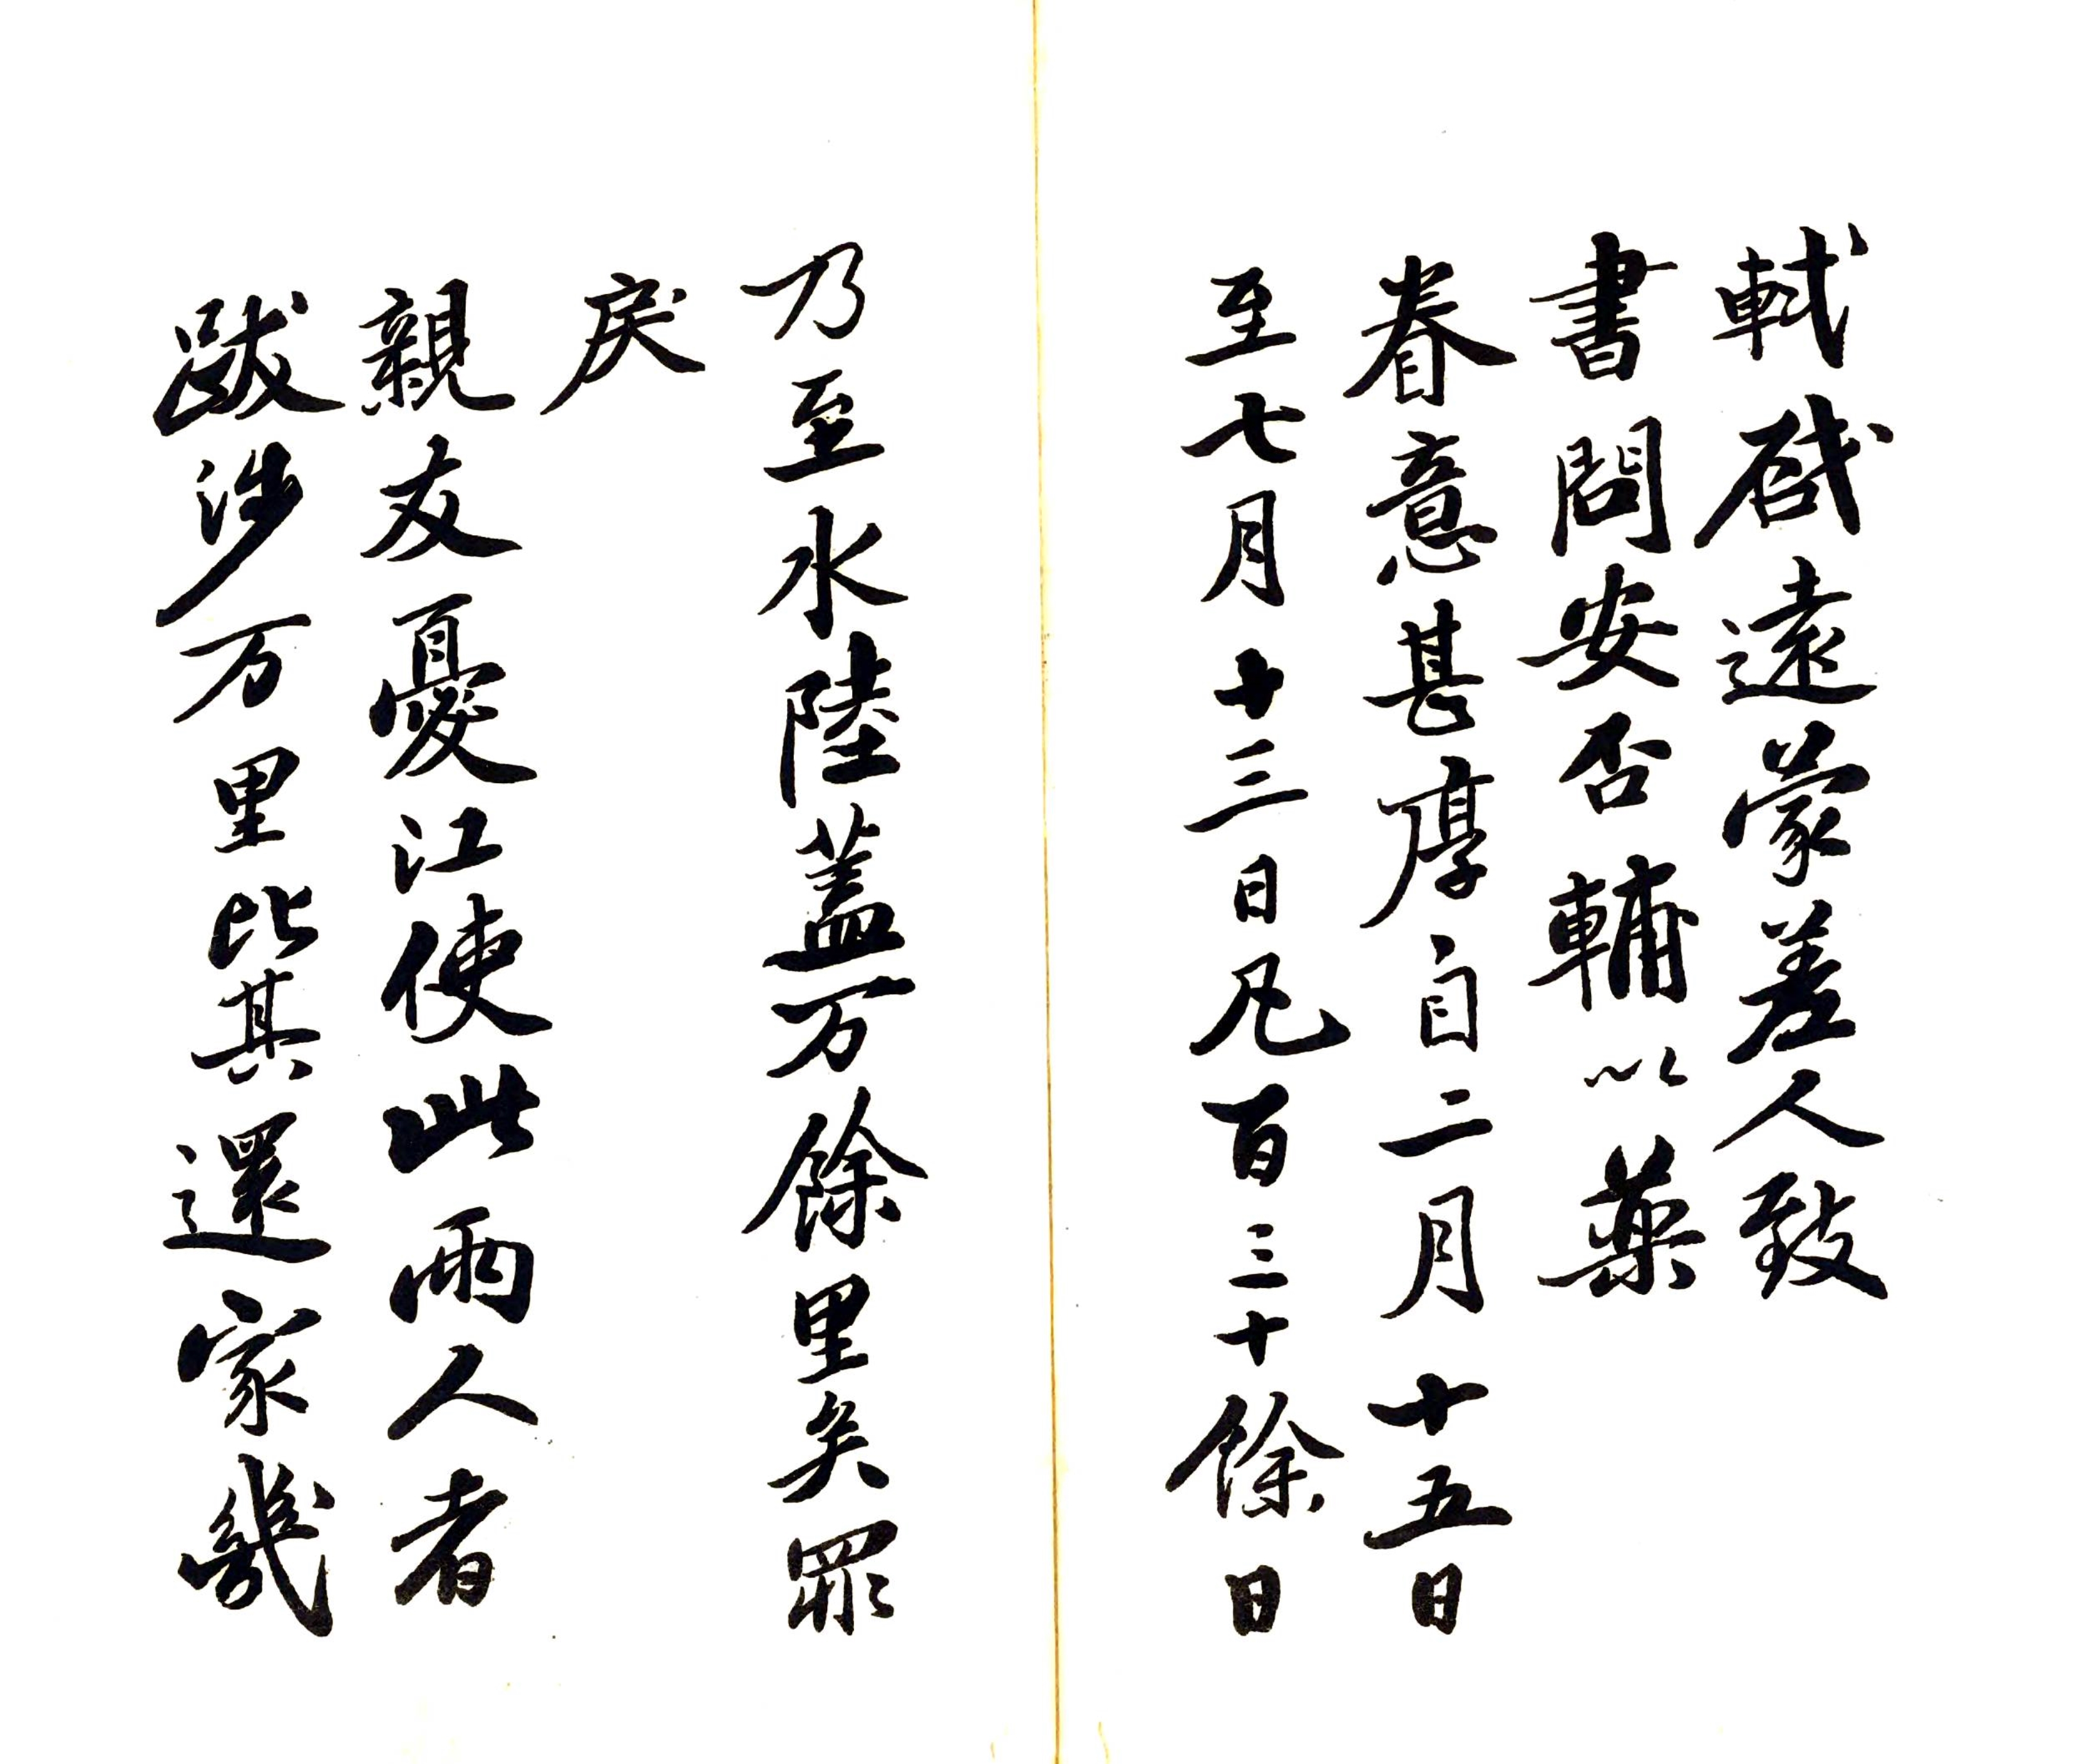 軾啟遠蒙差人致
書問安否輔以藥
眷意甚厚自二月十五日
至七月十三日凡百三十餘日
乃至水陸蓋万餘里矣罪
戾
親友憂江使此兩人者
跋涉万里比其還家幾